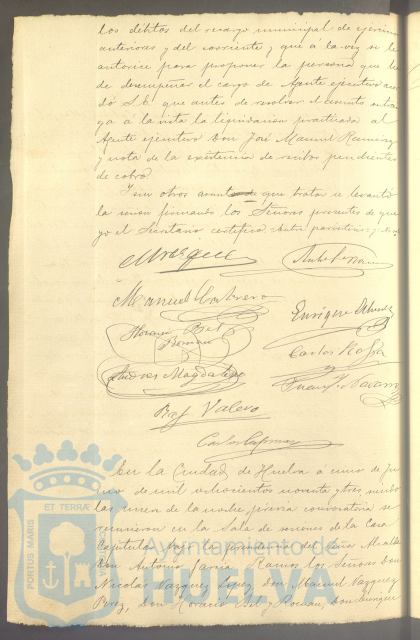 los débitos del recargo municipal de ejercicios
anteriores y del corriente y que a la vez se le
autorice para proponer la persona que ha
de desempeñar el cargo de Agente ejecutivo acor
dó S.E. que antes de resolver el asunto se trai
ga á la vista la liquidación practicada al
Agente ejecutivo Don José Manuel Ramirez
y nota de la existencia de recibos pendientes
de cobro.
Y sin otros asuntos de que tratar se levantó
la sesion firmando los Señores presentes de que
yo el Secretario certifico
Marquez
Manuel Cabrera
Enrique
Horacio Bel
Roman
Carlos
Andres Magdaleno
Juan J. Navarro
Raf Valero
Carlos
En la Ciudad de Huelva á uno de Ju
nio de mil ochocientos noventa y tres siendo
las nueve de la noche, previa convocatoria se
reunieron en la Sala de sesiones de la Casa
Capitular bajo la presidencia del Señor Alcalde
Don Antonio Garcia Ramos los Señores Don
Nicolas Vazquez Lopez, Don Manuel Vazquez
Perez, Don Horacio Bel y Román, Don Enrique
PORTUS MARIS
ET TERRÆ
Ayuntamiento de
HUELVA